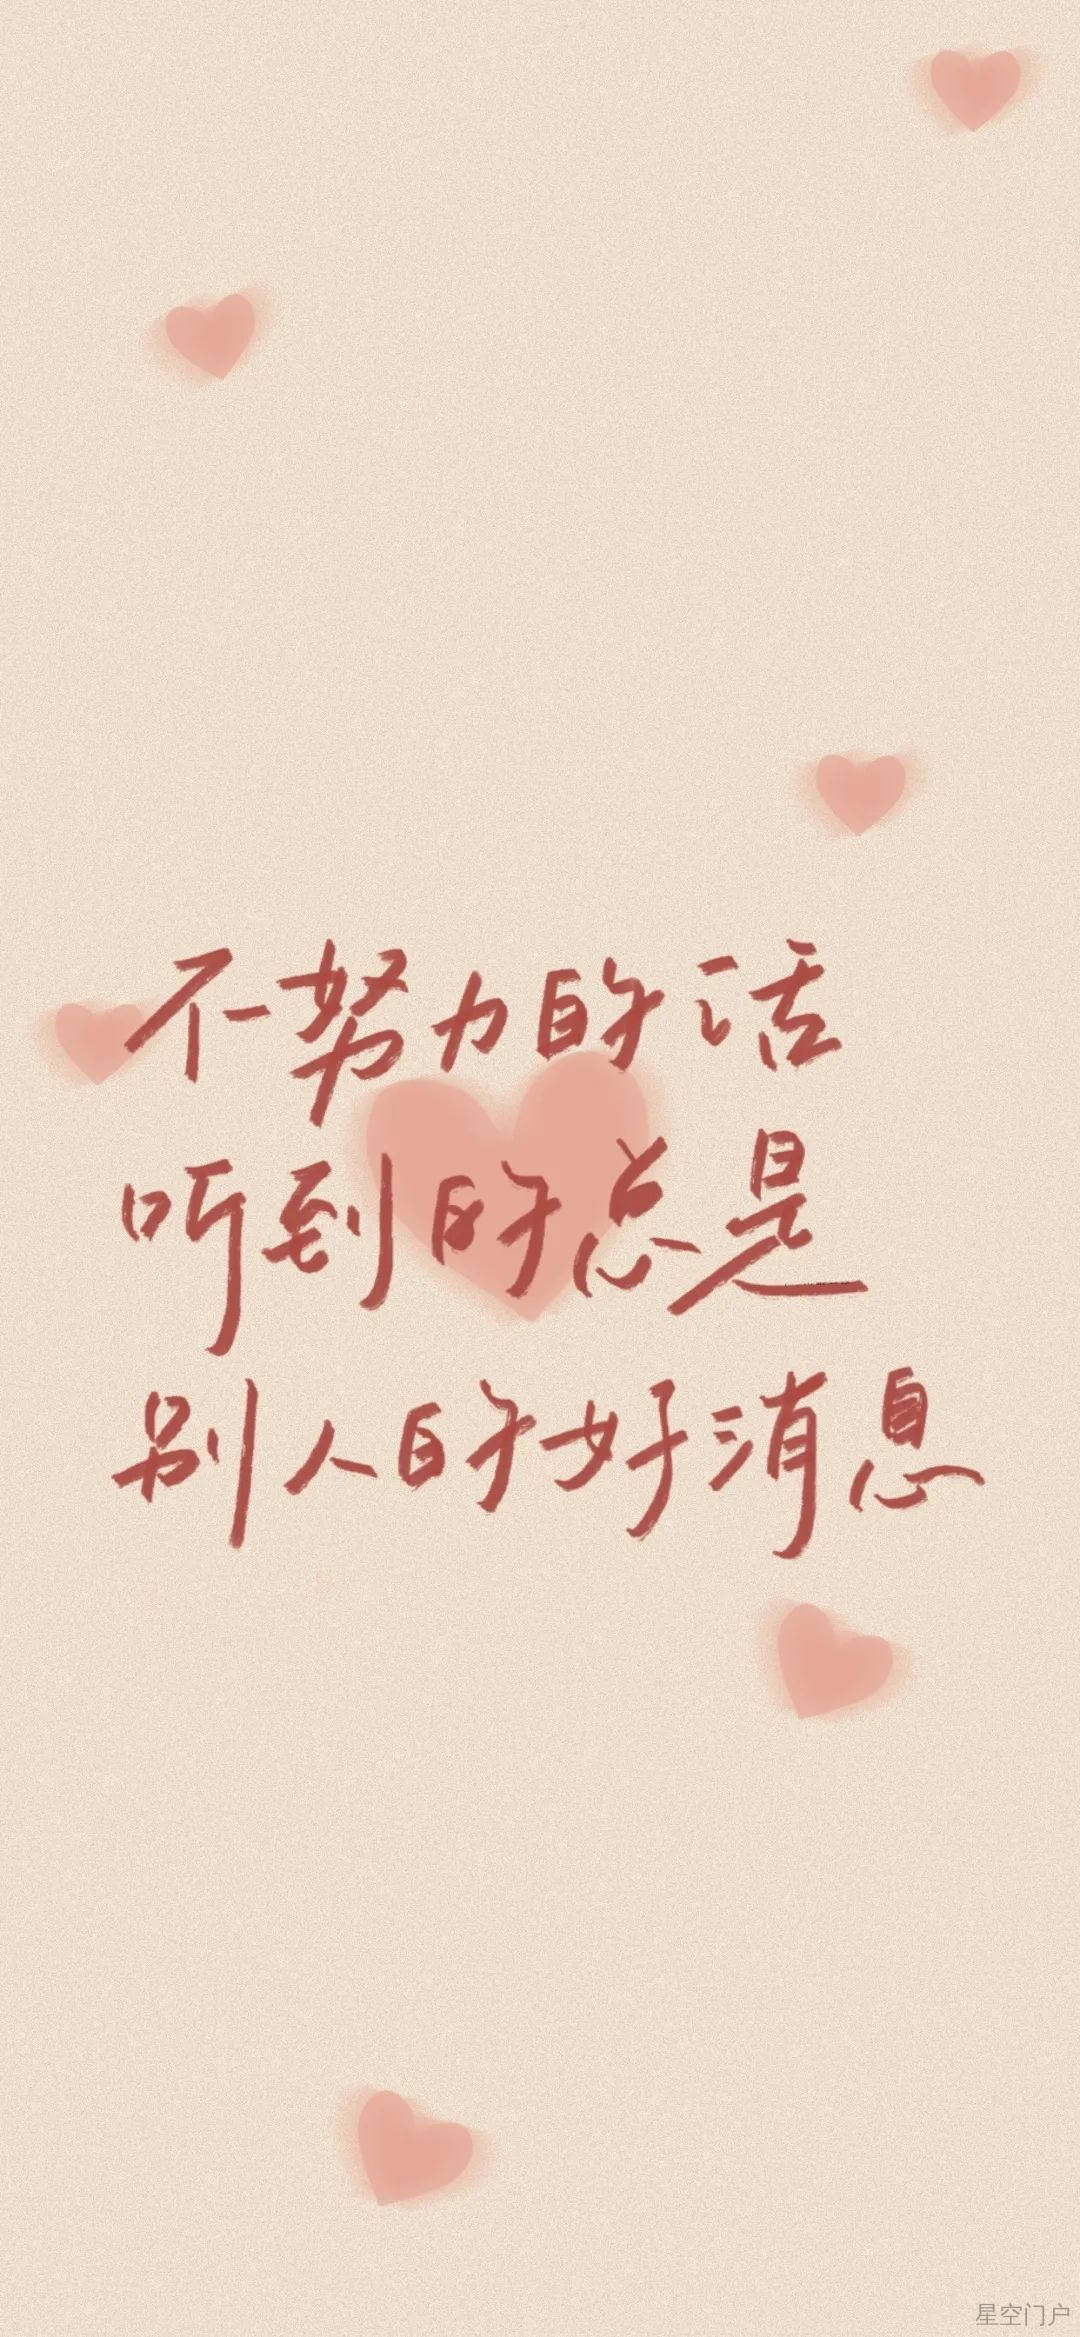 不努力的话
听到的总是
别人的好消息
星空门户